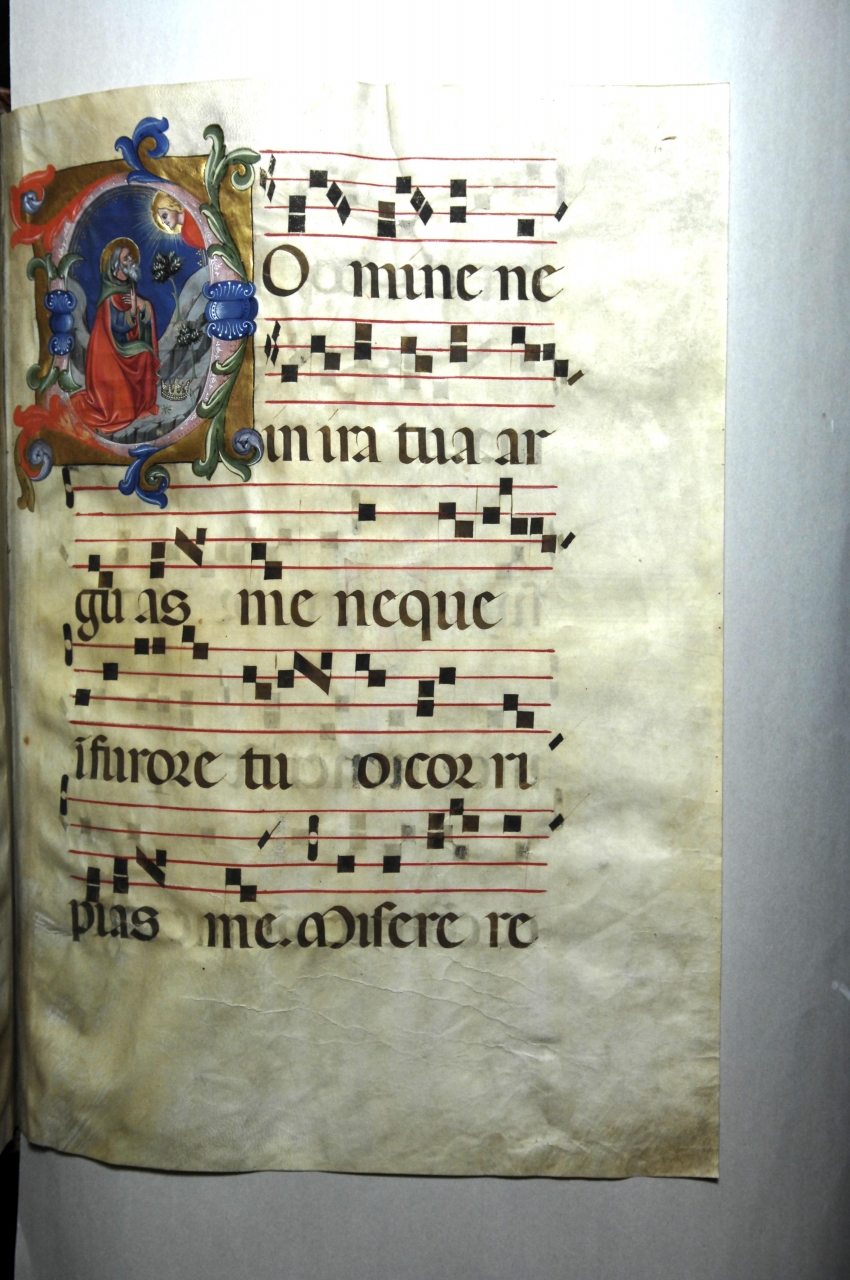 DOmine ne
in ira tua ar
gu as me neque
ī furore tu o cor ri
pias me. Misere re